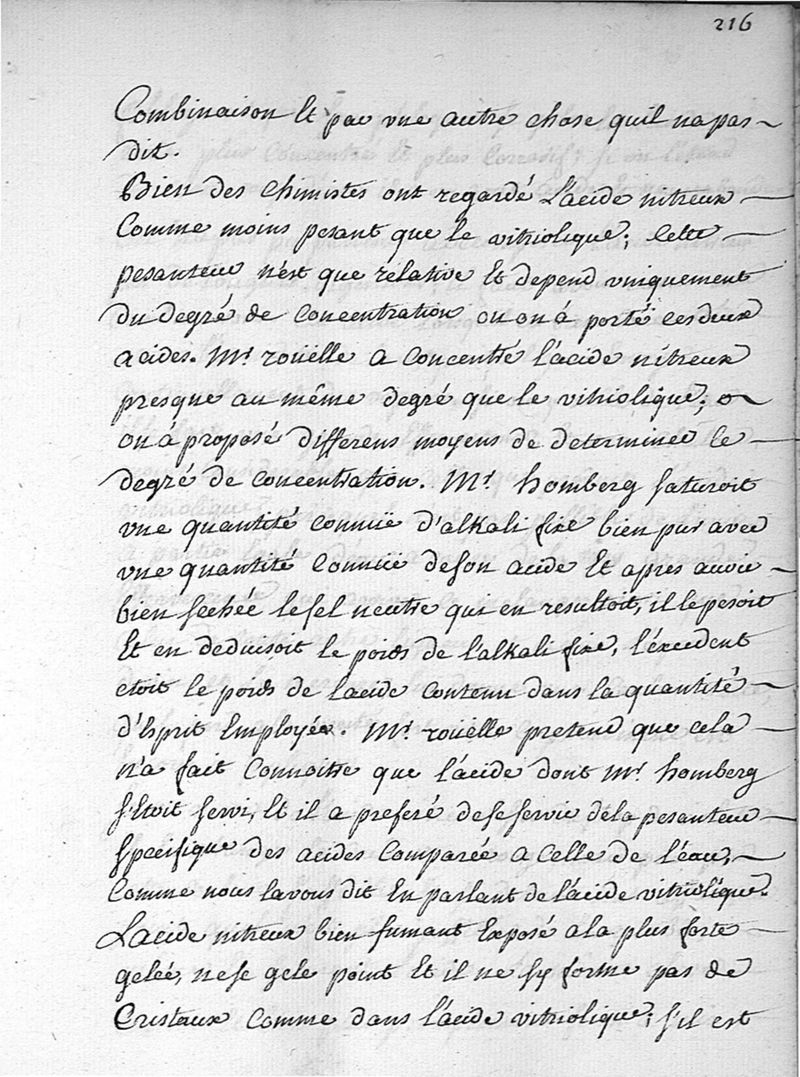 216
Combinaison Et par une autre chose quil na pas
dit.
Bien des Chimistes ont regardé L'acide nitreux
Comme moins pesant que le vitriolique; Cette
pesanteur n'est que relative Et depend uniquement
du degré de Concentration ou on à porté ces deux
acides. Mr. roüelle a Concentré l'acide nitreux
presque au même degré que le vitriolique;
on à proposé differens moyens de determiner le
degré de Concentration. Mr. homberg saturoit
une quantité Connüe d'alkali fixe bien pur avec
une quantité Connüe de son acide Et apres avoir
bien sechée le sel neutre qui en resultoit, il le pesoit
Et en deduisoit le poids de l'alkali fixe, l'éxcedent
etoit le poids de lacide Contenu dans la quantité
d'Esprit Employée. Mr. roüelle pretend que cela
n'a fait Connoitre que l'acide dont Mr. homberg
s'Etoit servi, Et il a preferé de se servir dela pesanteur
specifique des acides Comparée a Celle de l'éau,
Comme nous lavons dit En parlant de l'acide vitriolique.
Lacide nitreux bien fumant Exposé a la plus forte
gelée, ne se gele point Et il ne s'y forme pas de
Cristaux Comme dans l'acide vitriolique; s'il est